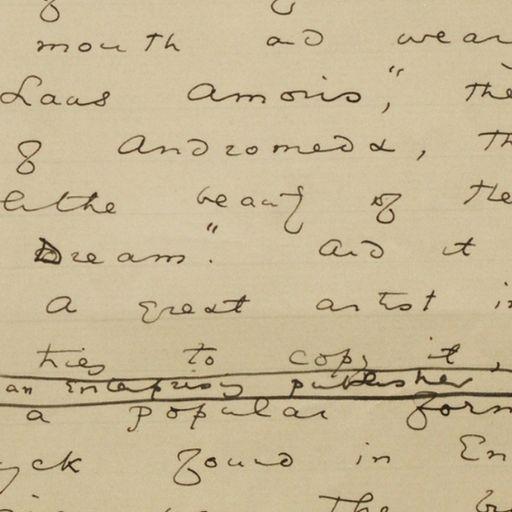 mouth and wear
Laus Amoris," the
of Andromeda, th
lithe beauty of the
Dream". And it
a great artist in
tries to copy it,
an enterprising publisher
a popular form
yck found in En
the